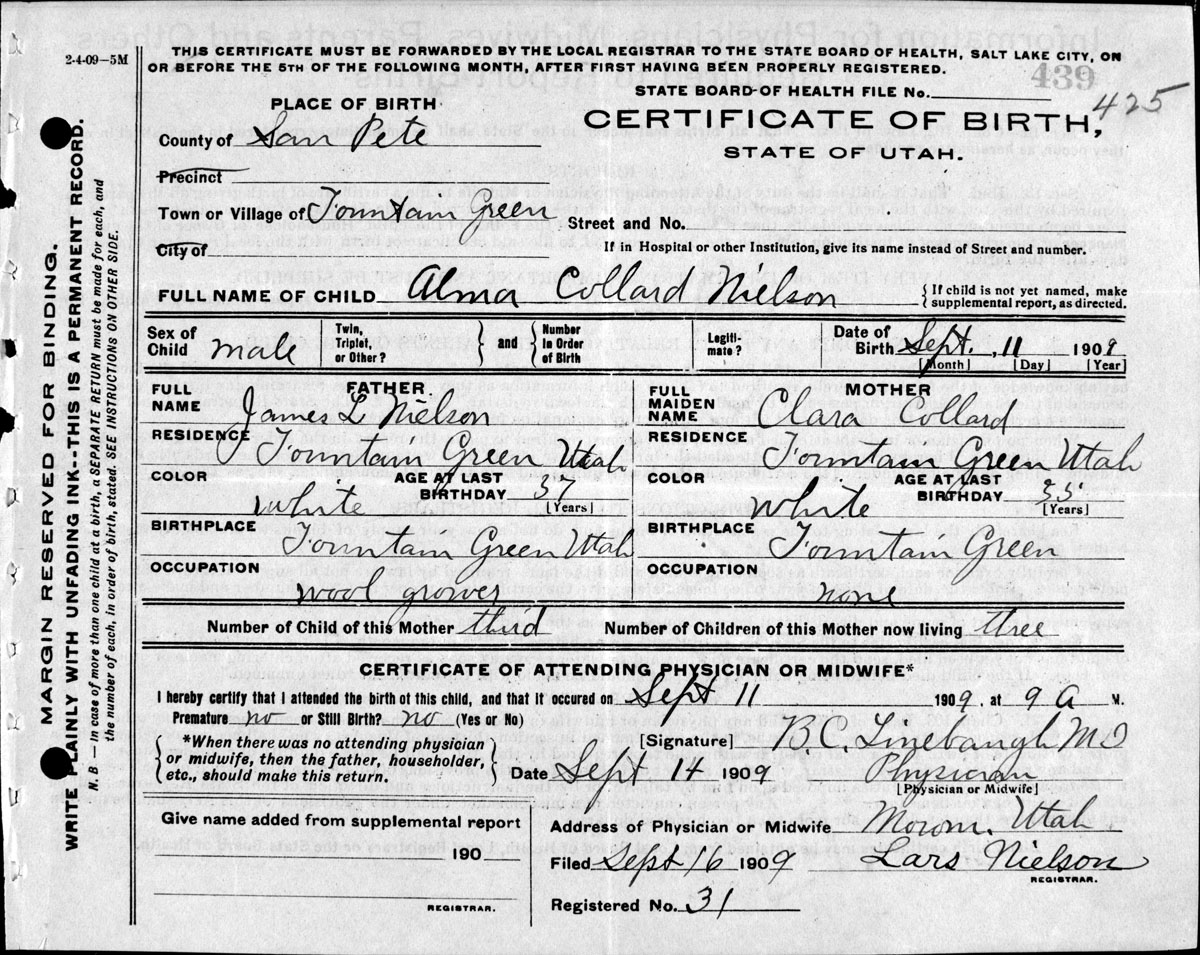 2-4-09-5M
THIS CERTIFICATE MUST BE FORWARDED BY THE LOCAL REGISTRAR TO THE STATE BOARD OF HEALTH, SALT LAKE CITY, ON
OR BEFORE THE 5TH OF THE FOLLOWING MONTH, AFTER FIRST HAVING BEEN PROPERLY REGISTERED.
439
STATE BOARD OF HEALTH FILE No. 425
PLACE OF BIRTH
CERTIFICATE OF BIRTH,
STATE OF UTAH.
County of San Pete
Precinct
Town or Village of Fountain Green Street and No.
City of
If in Hospital or other Institution, give its name instead of Street and number.
FULL NAME OF CHILD Alma Collard Nielson { If child is not yet named, make supplemental report, as directed.
Sex of Child male Twin, Triplet, or Other? } and { Number in Order of Birth Legiti-mate? Date of Birth Sept. 11 1909
[Month] [Day] [Year]
FATHER
FULL NAME James L Nielson
RESIDENCE Fountain Green Utah
COLOR White AGE AT LAST BIRTHDAY 37 [Years]
BIRTHPLACE Fountain Green Utah
OCCUPATION wool grower
MOTHER
FULL MAIDEN NAME Clara Collard
RESIDENCE Fountain Green Utah
COLOR White AGE AT LAST BIRTHDAY 35 [Years]
BIRTHPLACE Fountain Green
OCCUPATION none
Number of Child of this Mother third Number of Children of this Mother now living three
CERTIFICATE OF ATTENDING PHYSICIAN OR MIDWIFE*
I hereby certify that I attended the birth of this child, and that it occured on Sept 11 1909, at 9 A M.
Premature no or Still Birth? no (Yes or No)
{ *When there was no attending physician or midwife, then the father, householder, etc., should make this return. }
[Signature] B.C. Linebaugh MD
Date Sept 14 1909 Physician
[Physician or Midwife]
Give name added from supplemental report
190
REGISTRAR.
Address of Physician or Midwife Moroni, Utah
Filed Sept 16 1909 Lars Nielson
REGISTRAR.
Registered No. 31
MARGIN RESERVED FOR BINDING.
WRITE PLAINLY WITH UNFADING INK--THIS IS A PERMANENT RECORD.
N. B — In case of more than one child at a birth, a SEPARATE RETURN must be made for each, and
the number of each, in order of birth, stated. SEE INSTRUCTIONS ON OTHER SIDE.